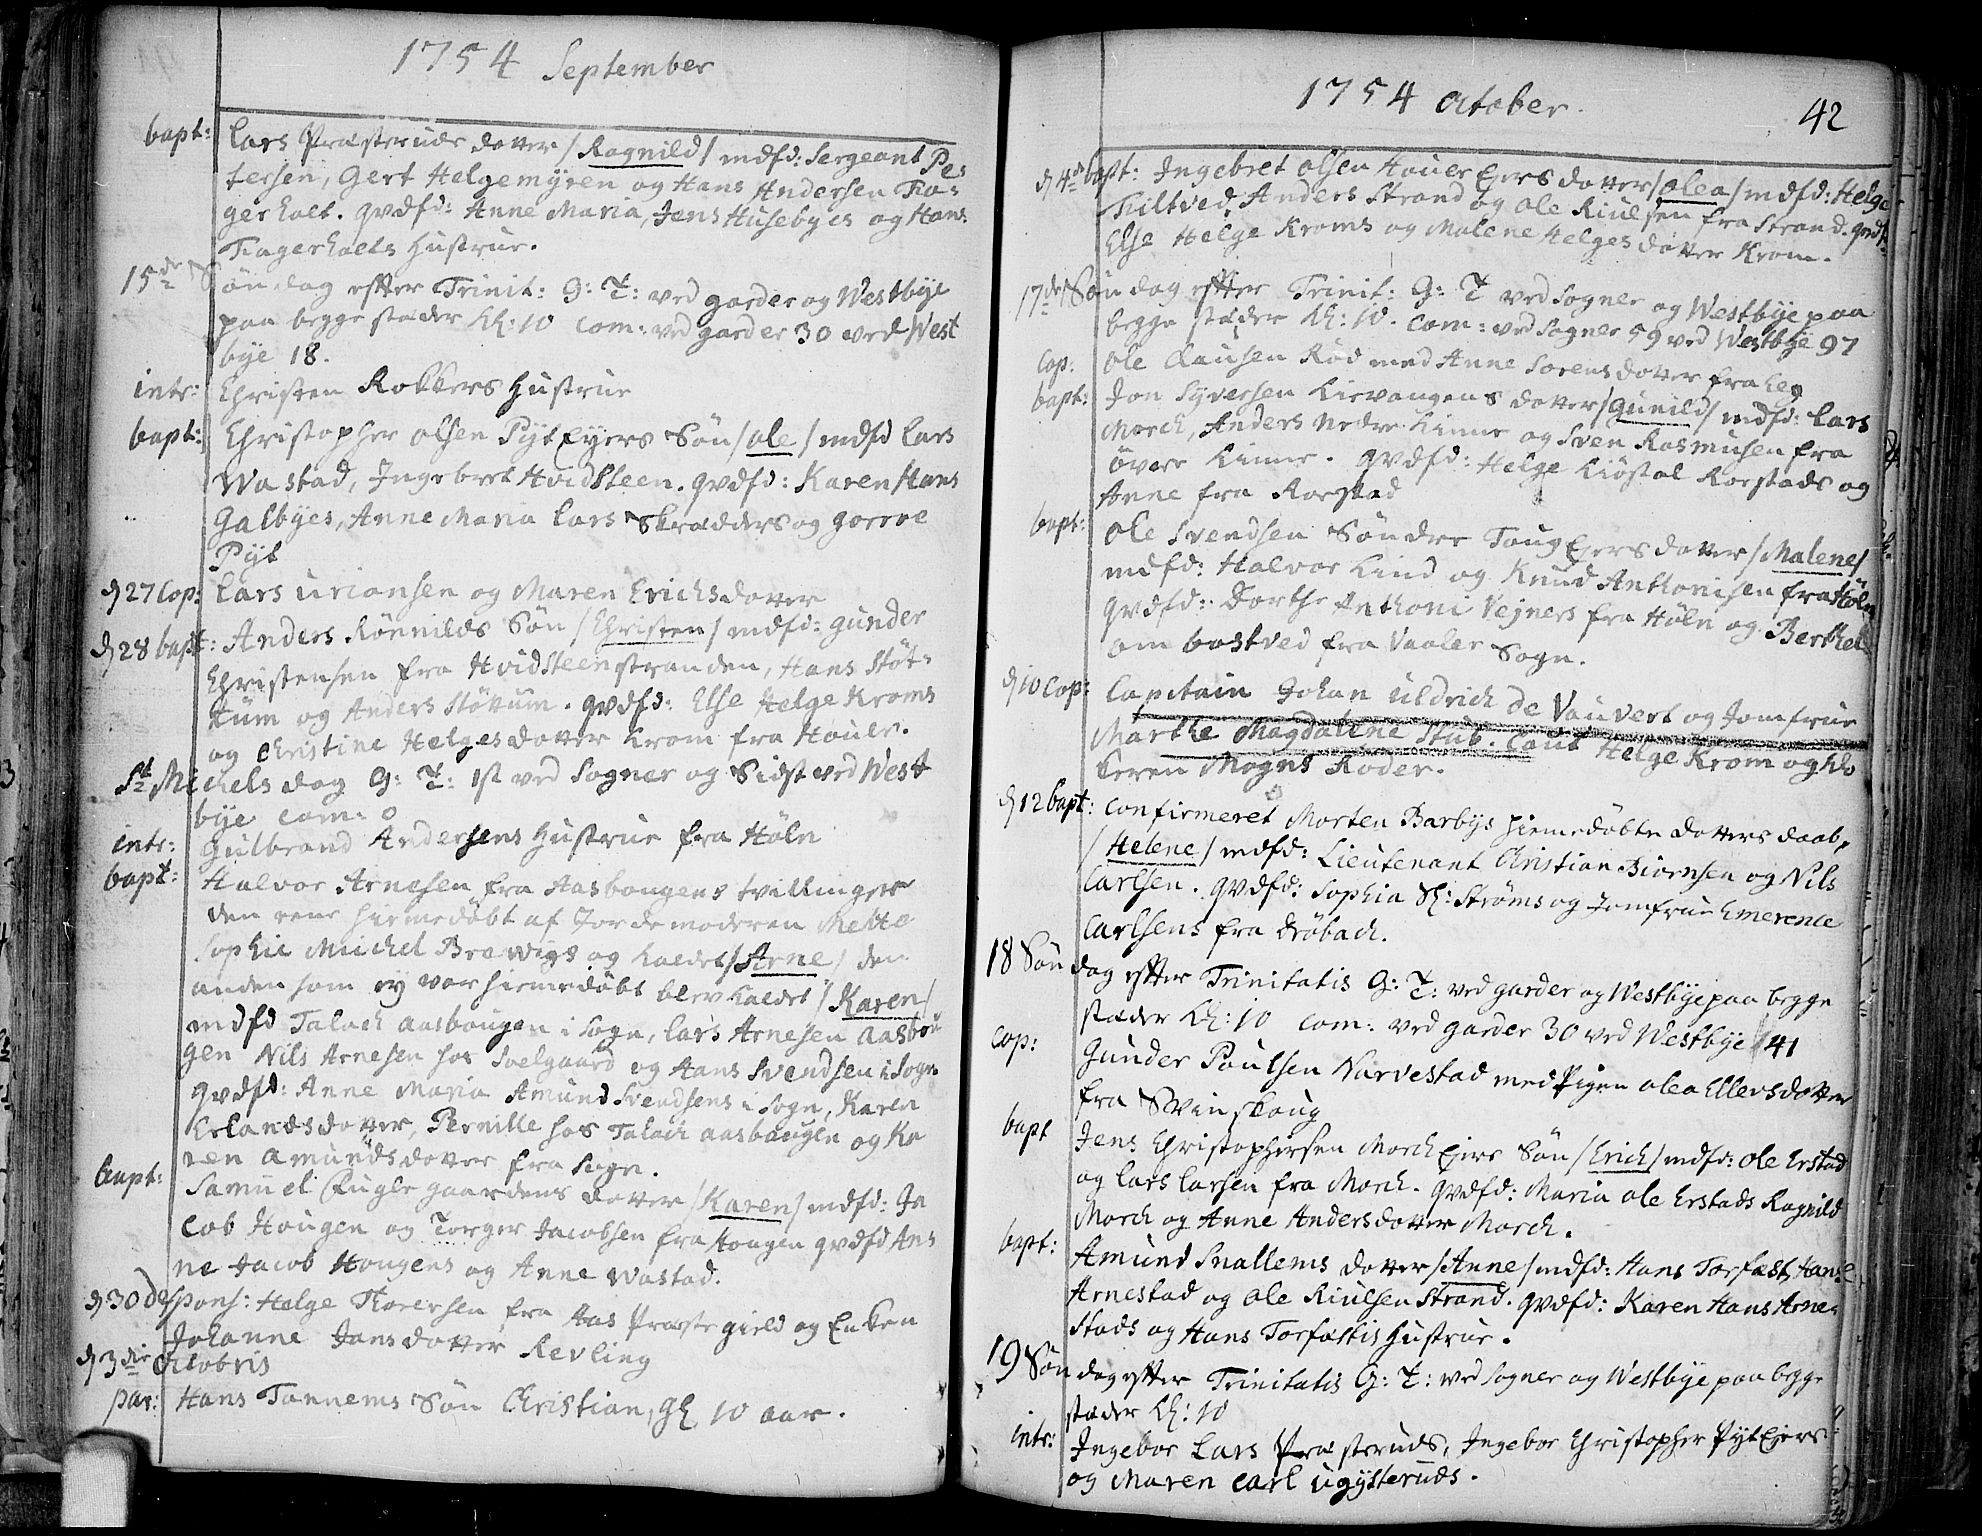 1754 September
bapt: Lars Præsteruds dotter /Ragnild/ mdfd: Sergeant Pe-
tersen, Gert Helgemyren og Hans Andersen Fla-
gerholt. qvdfd: Anne Maria, Jens Husebyes og Hans
Flagerholts Hustrue.
15de Søndag efter Trinit: G: T: ved garder og Westbye
paa begge stæder Kl: 10 Com: ved garder 30 ved West
bye 18.
intr: Christen Rokkers Hustrue
bapt: Christopher Olsen Pyt Eyers Søn /Ole/ mdfd Lars
Wastad, Ingebret Hvidsteen. qvdfd: Karen Hans
Galbyes, Anne Maria Lars Skrædders og
Pyt
d 27 Cop: Lars Uriansen og Maren Erichsdotter
d 28 bapt: Anders Rønnilds Søn /Christen/ mdfd: gunder
Christensen fra Hvidsteenstranden, Hans Støt-
tum og Anders Støttum. qvdfd: Else Helge Kroms
og Christine Helgesdotter Krom fra Houer.
St Michels dag G: T: 1st ved Sogner og Sidst ved West
bye Com: 0
intr: Gulbrand Andersens Hustrue fra Høln
bapt: Halvor Arnesen fra Aasbougens tvillinger
den eene hiemedøbt af Jordemoderen Mette
Sophie Michel Brawigs og kaldet /Arne/ den
anden som ey var hiemedøbt blev kaldet /Karen/
mdfd Talach aasbougen i Sogn, Lars Arnesen aasbou
gen Nils Arnesen hos Soelgaard og Hans Svendsen i Sogn
qvdfd: Anne Maria Amund Svendsens i Sogn, Karen
Erlandsdotter, Pernille hos Talach aasbougen og Ka
ren Amundsdotter fra Sogn.
bapt: Samuel Fuglegaardens dotter /Karen/ mdfd: Ja
cob Hougen og Torger Jacobsen fra Hougen qvdfd An
ne Jacob Hougens og Anne Wastad.
d 30 despons: Helge Thorersen fra Aas Præstegield og Enken
Johanne Jansdotter Revling
d 3die Octobris
par: Hans Tannems Søn Christian, gl 10 aar.

1754 October. 42
d 4de bapt: Ingebret Olsen Houer Ejers dotter /Olea/ mdfd: Helge
Tultved, Anders Strand og Ole Riulsen fra Strand. qvdf:
Else Helge Kroms og Malene Helgesdotter Krom.
17de Søndag efter Trinit: G: T ved Sogner og Westbye paa
begge stæder Kl: 10. Com: ved Sogner 59 ved Westbye 97
Cop: Ole Clausen Rød med Anne Sorensdotter fra Leg
bapt: Jon Syversen Kirvangens dotter /Gunild/ mdfd: Lars
Morch, Anders Nedre Kinne og Sven Rasmusen fra
øvere Kinne. qvdfd: Helge Kiøstol Rorstads og
Anne fra Rorstad
bapt: Ole Svendsen Søndre Toug Ejers dotter /Malene/
mdfd: Halvor Lind og Knud Anthonisen fra Høln
qvdfd: Dorthe Anthoni Vejners fra Høln og Berthe
om bostved fra Vaaler Sogn.
d 10 Cop: Capitain Johan Uldrich de Vauvert og Jomfrue
Marthe Magdalene Stub. Caut Helge Krom og Klo
keren Mogns Røder.
d 12 bapt: Confirmeret Morten Barbys hiemedøbte dotters daab,
/Helene/ mdfd: Lieutenant Christian Biørnsen og Nils
Carlsen. qvdfd: Sophia Sl: Strøms og Jomfrue Emerence
Carlsens fra Drøbach.
18 Søndag efter Trinitatis G: T: ved garder og Westbye paa begge
stæder Kl: 10 Com: ved garder 30 ved Westbye 141
Cop: Gunder Poulsen Narvestad med Pigen Olea Ellersdotter
fra Svinskoug
bapt Jens Christophersen Morch Ejers Søn /Erich/ mdfd: Ole Erstad
og Lars Larsen fra Morch. qvdfd: Maria Ole Erstads Ragnild
Morch og Anne Andersdotter Morch.
bapt: Amund Snallems dotter /Anne/ mdfd: Hans Torfæst, Hans
Arnestad og Ole Riulsen Strand. qvdfd: Karen Hans Arne-
stads og Hans Torfæstis Hustrue.
19 Søndag efter Trinitatis G: T: ved Sogner og Westbye paa begge
stæder Kl: 10
intr: Ingebor Lars Præsteruds, Ingebor Christopher Pyt Ejers
og Maren Carl Ugysteruds.